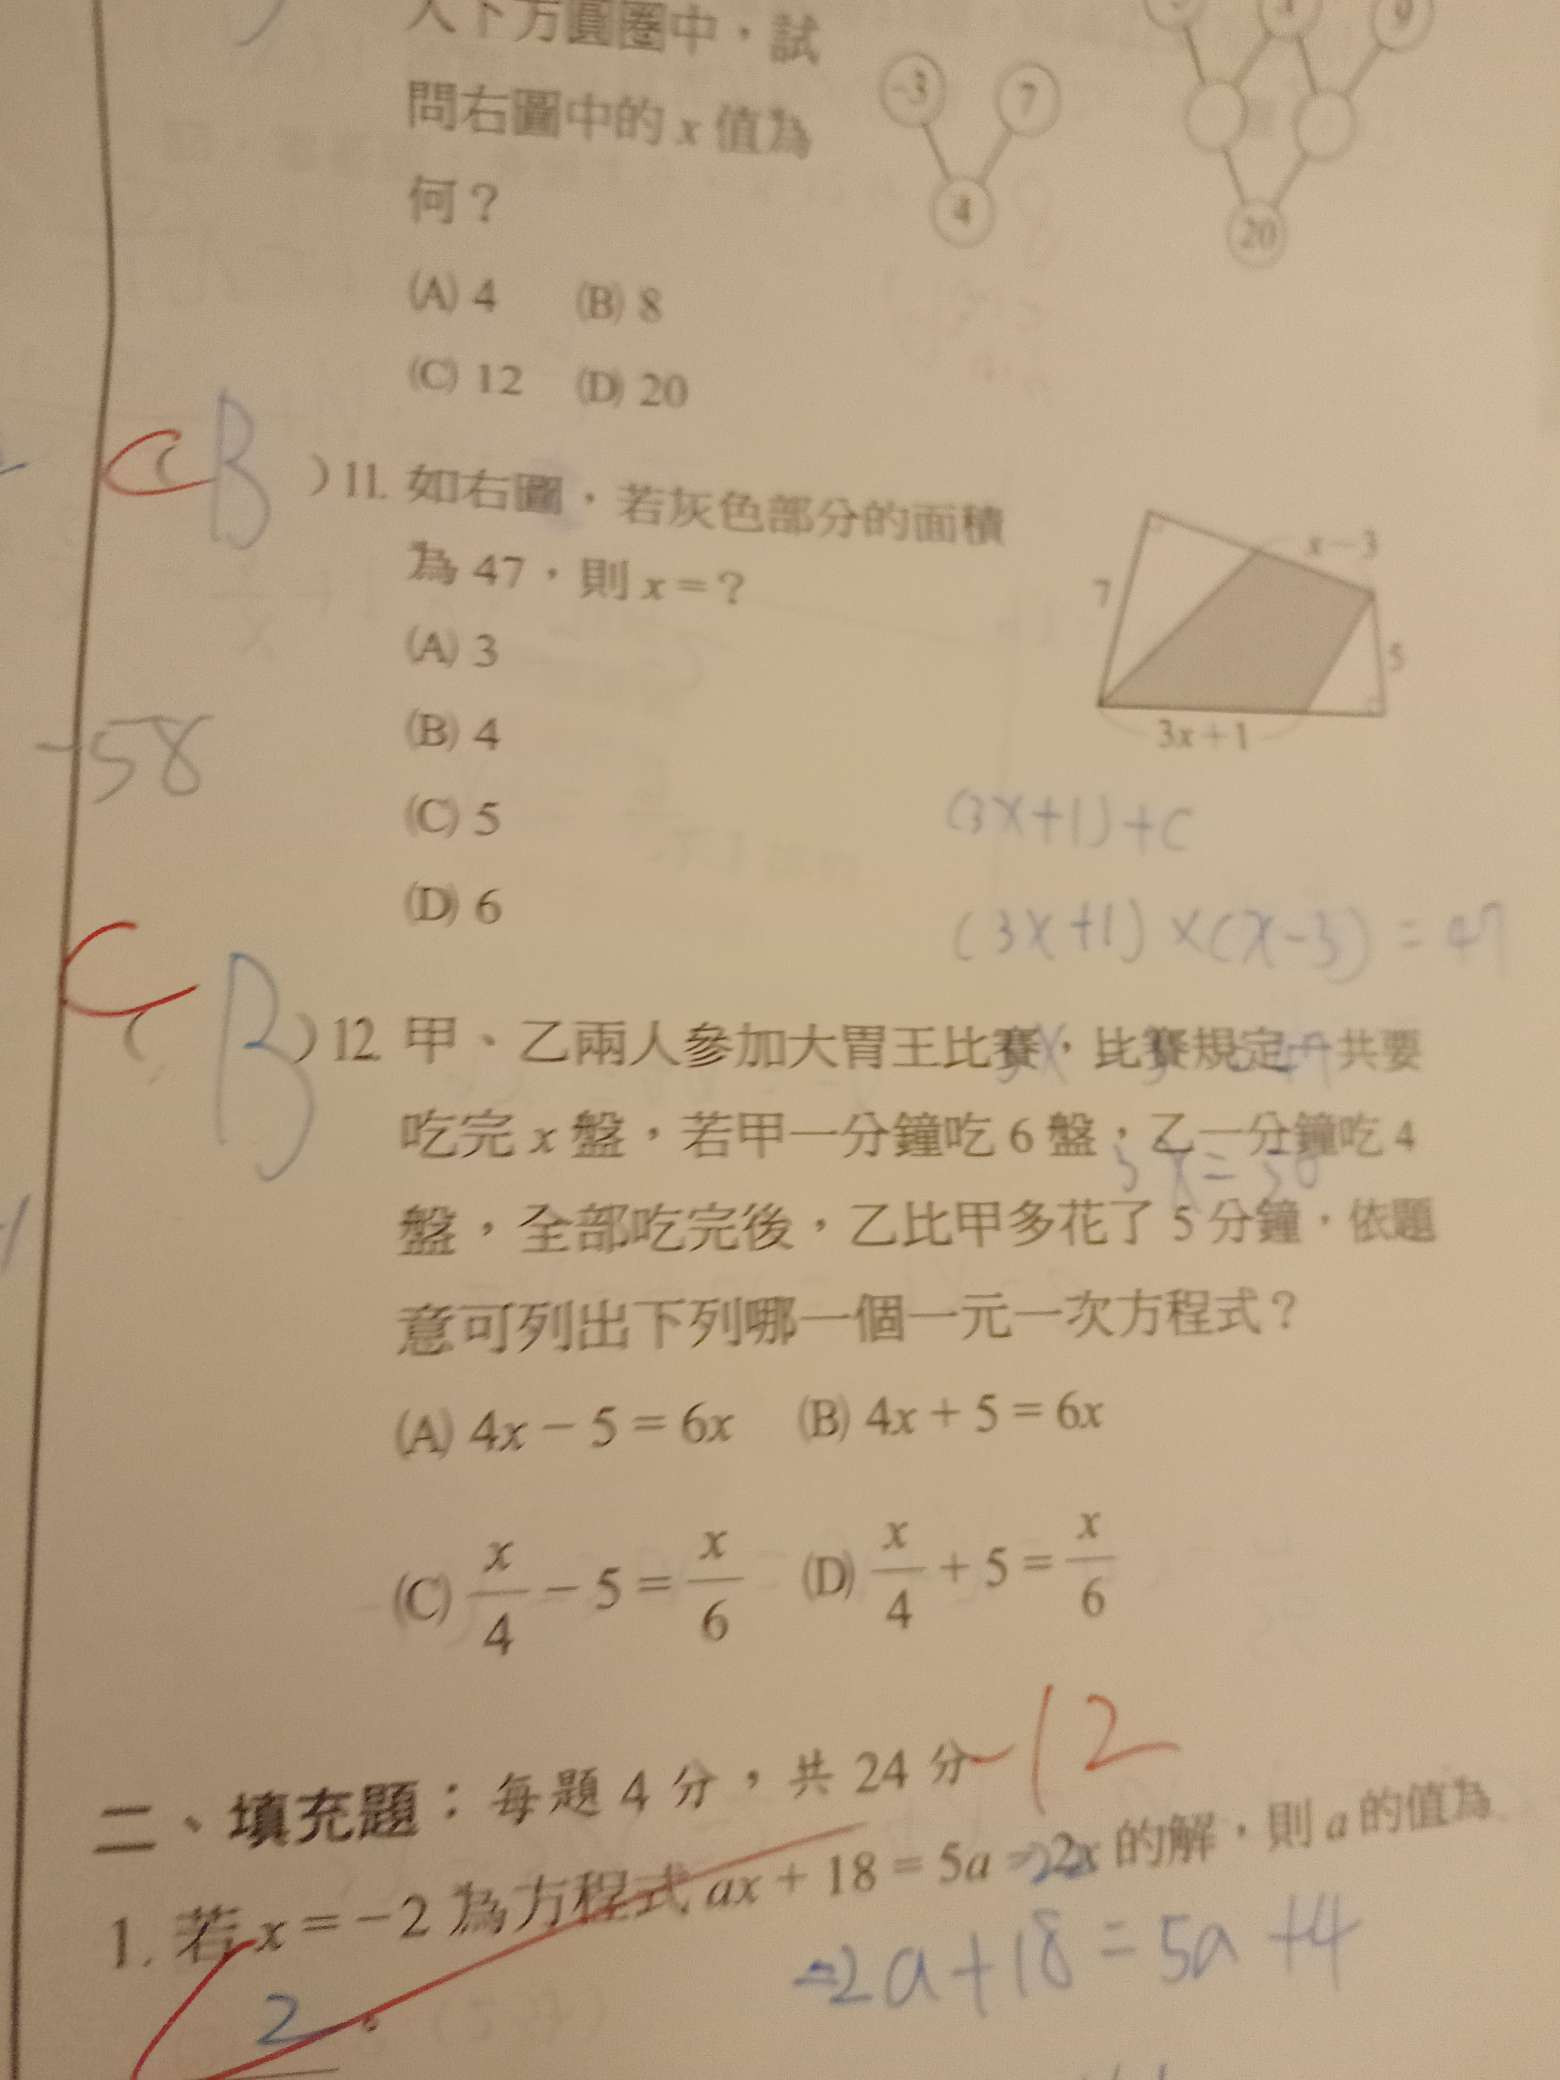 人下方圓圈中，試
問右圖中的 x 值為
何？
-3
7
4
9
20
(A) 4 (B) 8
(C) 12 (D) 20
C
( B )11. 如右圖，若灰色部分的面積
為 47，則 x＝？
(A) 3
(B) 4
(C) 5
(D) 6
x－3
7
5
3x＋1
-58
(3x+1)+C
(3x+1)×(x-3)=47
C
( B )12. 甲、乙兩人參加大胃王比賽，比賽規定一共要
吃完 x 盤，若甲一分鐘吃 6 盤，乙一分鐘吃 4
盤，全部吃完後，乙比甲多花了 5 分鐘，依題
意可列出下列哪一個一元一次方程式？
(A) 4x－5＝6x (B) 4x＋5＝6x
(C) x/4－5＝x/6 (D) x/4＋5＝x/6
-12
二、填充題：每題 4 分，共 24 分
1. 若 x＝－2 為方程式 ax＋18＝5a－2x 的解，則 a 的值為
2 。
-2a+18=5a+4